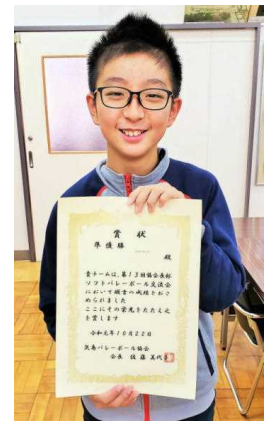 賞状
準優勝
殿
貴チームは、第13回協会長杯
ソフトバレーボール交流会
において頭書の成績をおさ
められました
ここにその栄光をたたえ之
を賞します
令和元年10月22日
バレーボール協会
会長 後藤 美代